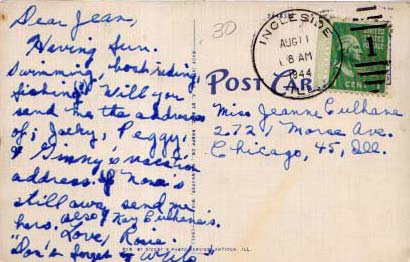 Dear Jean,
Having fun.
Swimming, boat riding,
fishing. Will you
send me the addresses
of; Jacky, Peggy,
& Ginny's vacation
address. If Nora's
still away send me
hers. also Kay Culhane's.
Love, Rosie.
"Don't forget to write"
30
INGLESIDE
AUG 11
8 AM
1944
ILL.
1
UNITED STATES
CENT
POST CARD
Miss Jeanne Culhane
2721 Morse Ave.
Chicago, 45, Ill.
PHOTO SERVICE, ANTIOCH, ILL.